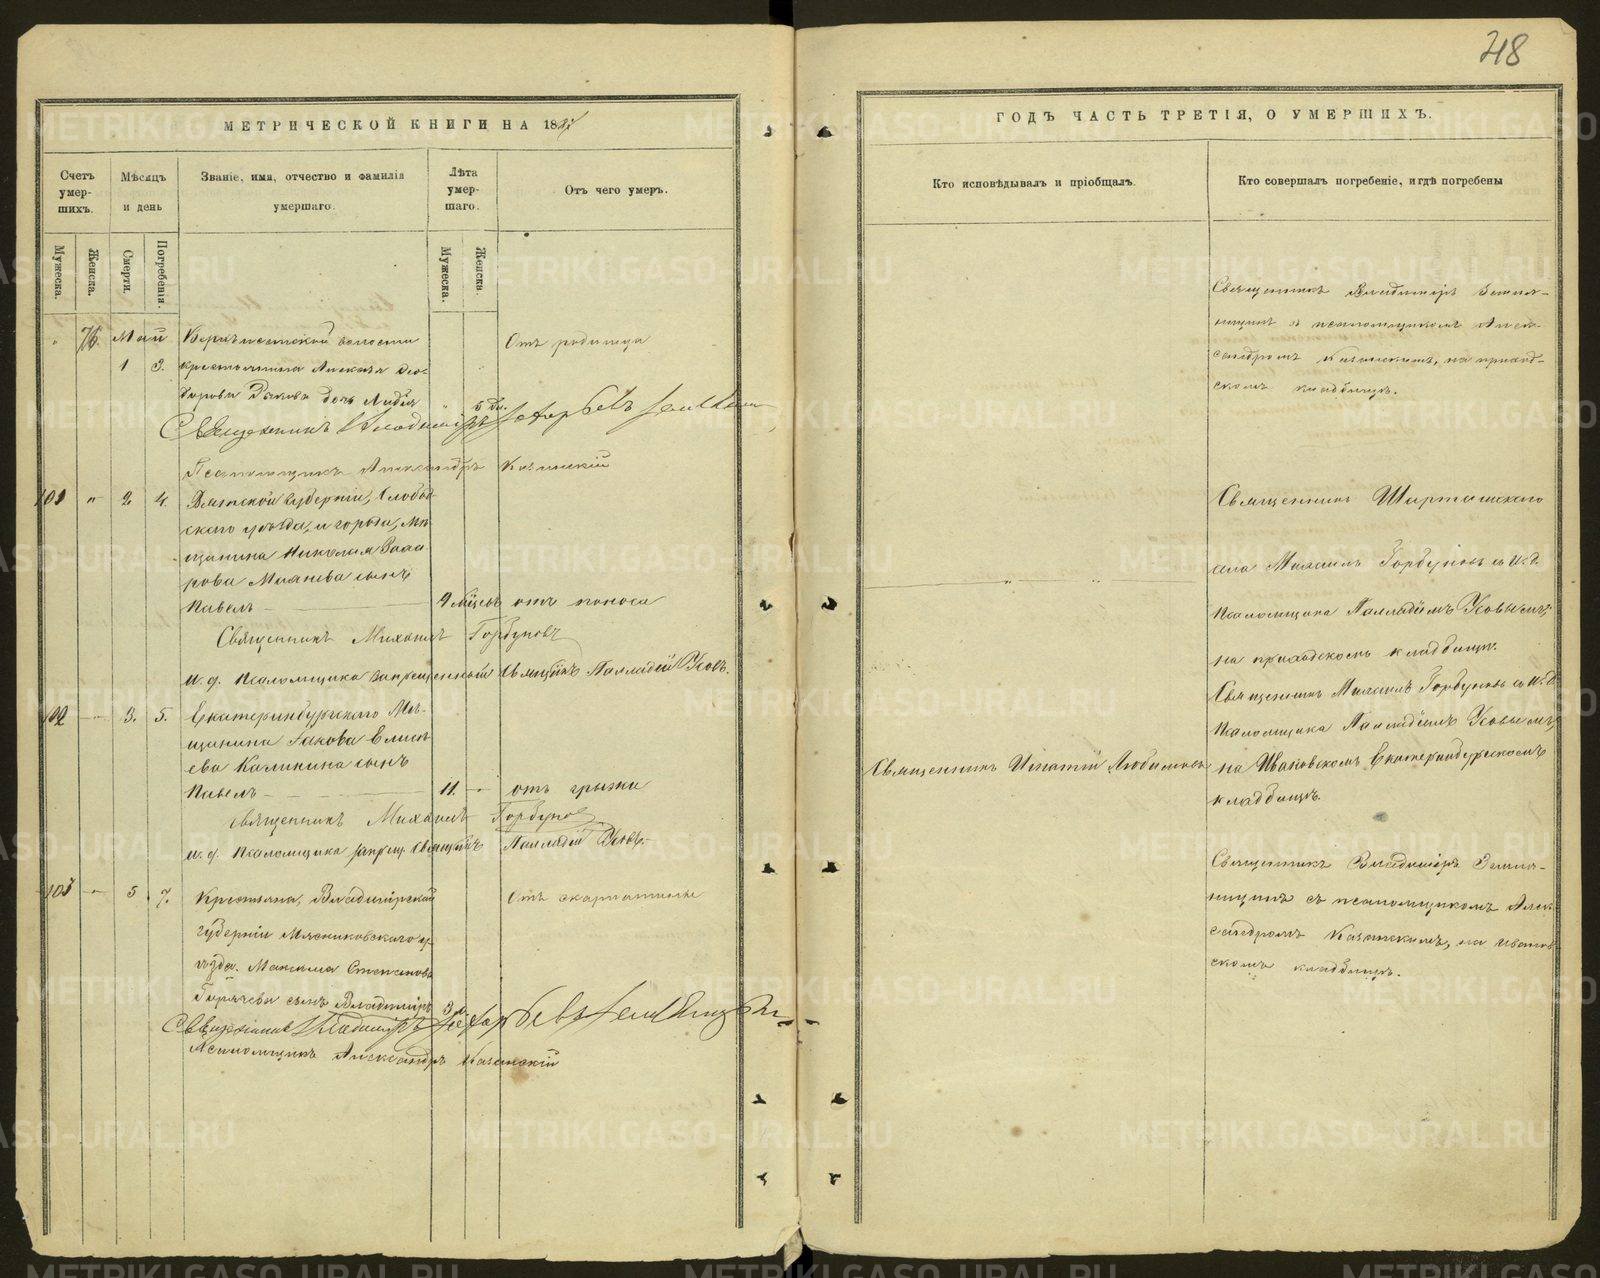 48
МЕТРИЧЕСКОЙ КНИГИ НА 18
ГОДЪ ЧАСТЬ ТРЕТІЯ, О УМЕРШИХЪ.
Счетъ умер-шихъ.
Мѣсяцъ и день
Званіе, имя, отчество и фамилія умершаго.
Лѣта умер-шаго.
Отъ чего умеръ.
Кто исповѣдывалъ и пріобщалъ.
Кто совершалъ погребеніе, и гдѣ погребены
Мужеска.
Женска.
Смерти.
Погребенія.
Мужеска.
Женска.
76. Май
1 3.
волости
крестьянина Алексѣя Ѳео-
дорова дочь Лидія
5 дн.
Отъ родимца
Священникъ Владиміръ
Псаломщикъ Александръ Казанскій
Священникъ Владиміръ Земля-
ницынъ съ псаломщикомъ Алек-
сандромъ Казанскимъ, на приход-
скомъ кладбищѣ.
101 " 2 4.
Вятской губерніи, Слобод-
скаго уѣзда, и города, мѣ-
щанина Николая
сынъ
Павелъ
мѣсяц. отъ поноса
Священникъ Михаилъ Горбуновъ
и. д. псаломщика запрещенный священ. Палладій Усовъ.
Священникъ Шарташскаго
села Михаилъ Горбуновъ с и. д.
псаломщика Палладіемъ Усовымъ,
на приходскомъ кладбищѣ.
102 3. 5.
Екатеринбургскаго Мѣ-
щанина Іакова Елисѣ-
ева Калинина сынъ
Павелъ
11. отъ грыжи
священникъ Михаилъ Горбуновъ
и. д. псаломщика запрещ. священ. Палладій Усовъ.
Священникъ Игнатій Любимовъ
Священникъ Михаилъ Горбуновъ с и. д.
псаломщика Палладіемъ Усовымъ,
на Ивановскомъ Екатеринбургскомъ
кладбищѣ.
103 5 7.
Крестьяна, Владимірской
губерніи у-
ѣзда. Максима Степанова
Горячева сынъ Владиміръ
Отъ скарлатины
Священникъ Владиміръ
Псаломщикъ Александръ Казанскій
Священникъ Владиміръ Земля-
ницынъ съ псаломщикомъ Алек-
сандромъ Казанскимъ, на Иванов-
скомъ кладбищѣ.
METRIKI.GASO-URAL.RU